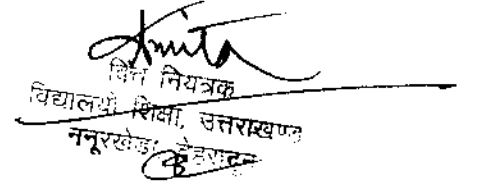 Amita
वित्त नियंत्रक
विद्यालयी शिक्षा, उत्तराखण्ड
ननूरखेडा देहरादून